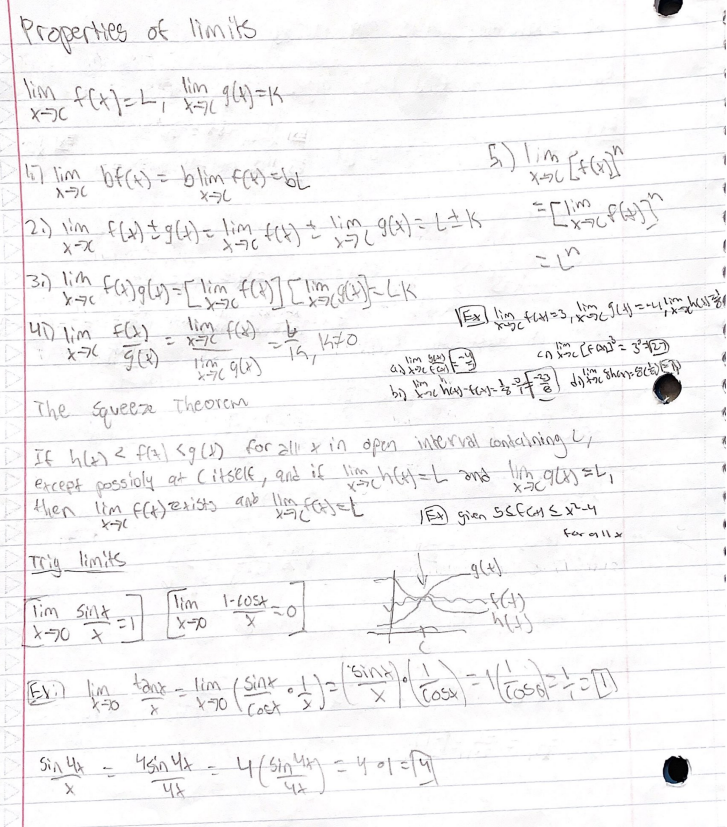 Properties of limits
lim x→c f(x)=L, lim x→c g(x)=K
1.) lim x→c bf(x) = b lim x→c f(x) = bL
2.) lim x→c f(x) ± g(x) = lim x→c f(x) ± lim x→c g(x) = L ± K
3.) lim x→c f(x)g(x) = [lim x→c f(x)] [lim x→c g(x)] = LK
4.) lim x→c f(x)/g(x) = lim x→c f(x) / lim x→c g(x) = L/K, K≠0
5.) lim x→c [f(x)]^n
= [lim x→c f(x)]^n
= L^n
Ex) lim x→c f(x)=3, lim x→c g(x)=-4, lim x→c h(x)=1/8
a.) lim x→c g(x)/f(x) = -4/3
c.) lim x→c [f(x)]^3 = 3^3 = 27
b.) lim x→c h(x)-f(x) =
d.) lim x→c 8h(x) = 8(1/8) = 1
The Squeeze Theorem
If h(x) < f(x) < g(x) for all x in open interval containing C,
except possibly at C itself, and if lim x→c h(x)=L and lim x→c g(x)=L,
then lim x→c f(x) exists and lim x→c f(x)=L
Ex) given 5 ≤ f(x) ≤ x²-4
for all x
Trig limits
lim x→0 sinx/x = 1 lim x→0 1-cosx/x = 0
g(x)
f(x)
h(x)
C
Ex:) lim x→0 tanx/x = lim x→0 (sinx/cosx · 1/x) = (sinx/x) · (1/cosx) = 1(1/cos0) = 1/1 = 1
sin4x/x = 4sin4x/4x = 4(sin4x/4x) = 4·1 = 4